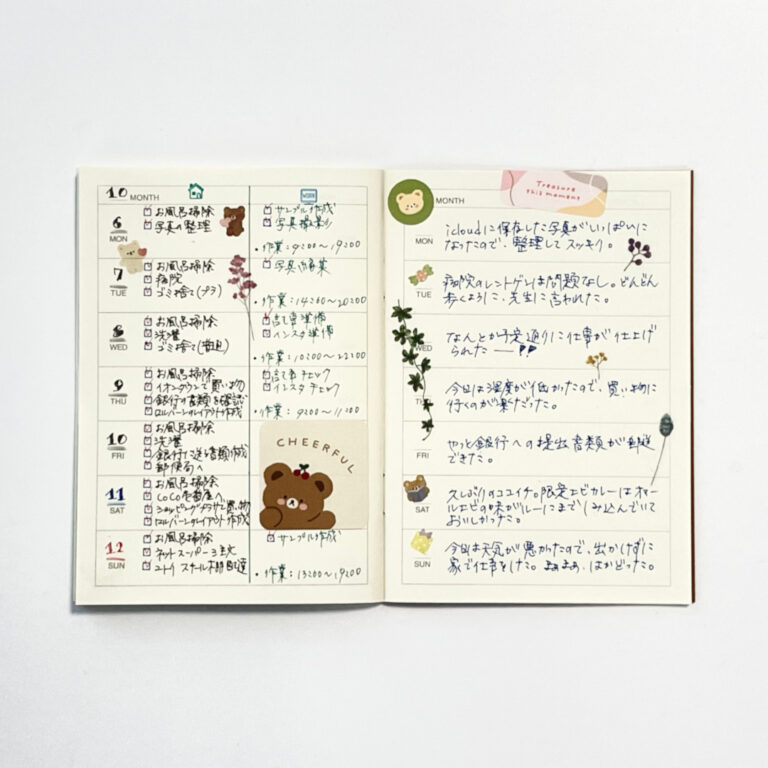 10 MONTH
WORK
6
MON
お風呂掃除
写真の整理
サンプル作成
写真撮影
・作業:9:00〜19:00
7
TUE
お風呂掃除
病院
ゴミ捨て(プラ)
・作業:14:00〜20:00
8
WED
お風呂掃除
洗濯
ゴミ捨て(普通)
インスタ準備
・作業:10:00〜22:00
9
THU
お風呂掃除
イオンタウンで買い物
銀行の書類を確認
ロルバーンレイアウト作成
インスタチェック
・作業:9:00〜11:00
10
FRI
お風呂掃除
洗濯
銀行に送る書類作成
郵便局へ
CHEERFUL
11
SAT
お風呂掃除
CoCo壱番屋へ
ショッピングプラザで買い物
ロルバーンレイアウト作成
12
SUN
お風呂掃除
ネットスーパー注文
サンプル作成
・作業:13:00〜19:00
MONTH
Treasure
this moment
MON
icloudに保存した写真がいっぱいに
なったので、整理してスッキリ。
TUE
病院のレントゲンは問題なし。どんどん
歩くように、先生に言われた。
WED
なんとか予定通りに仕事が仕上げ
られた
今日は湿度が低かったので、買い物に
行くのが楽だった。
FRI
やっと銀行への提出書類が郵送
できた。
SAT
久しぶりのココイチ。限定エビカレーはオマー
ルエビの味がルーにまでしみ込んでいて
おいしかった。
SUN
今日は天気が悪かったので、出かけずに
家で仕事をした。まぁまぁ、はかどった。